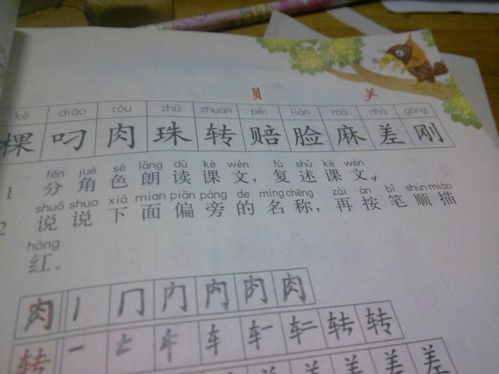 贝 羊
kē diāo ròu zhū zhuàn péi liǎn má chà gāng
棵 叼 肉 珠 转 赔 脸 麻 差 刚
fēn jué sè lǎng dú kè wén fù shù kè wén
1 分角色朗读课文，复述课文。
shuō shuo xià mian piān páng de míng chēng zài àn bǐ shùn miáo
2 说说下面偏旁的名称，再按笔顺描
hóng
红。
肉 丨 冂 内 内 肉 肉
转 一 𠂉 车 车 车一 车二 转 转
差 差 差